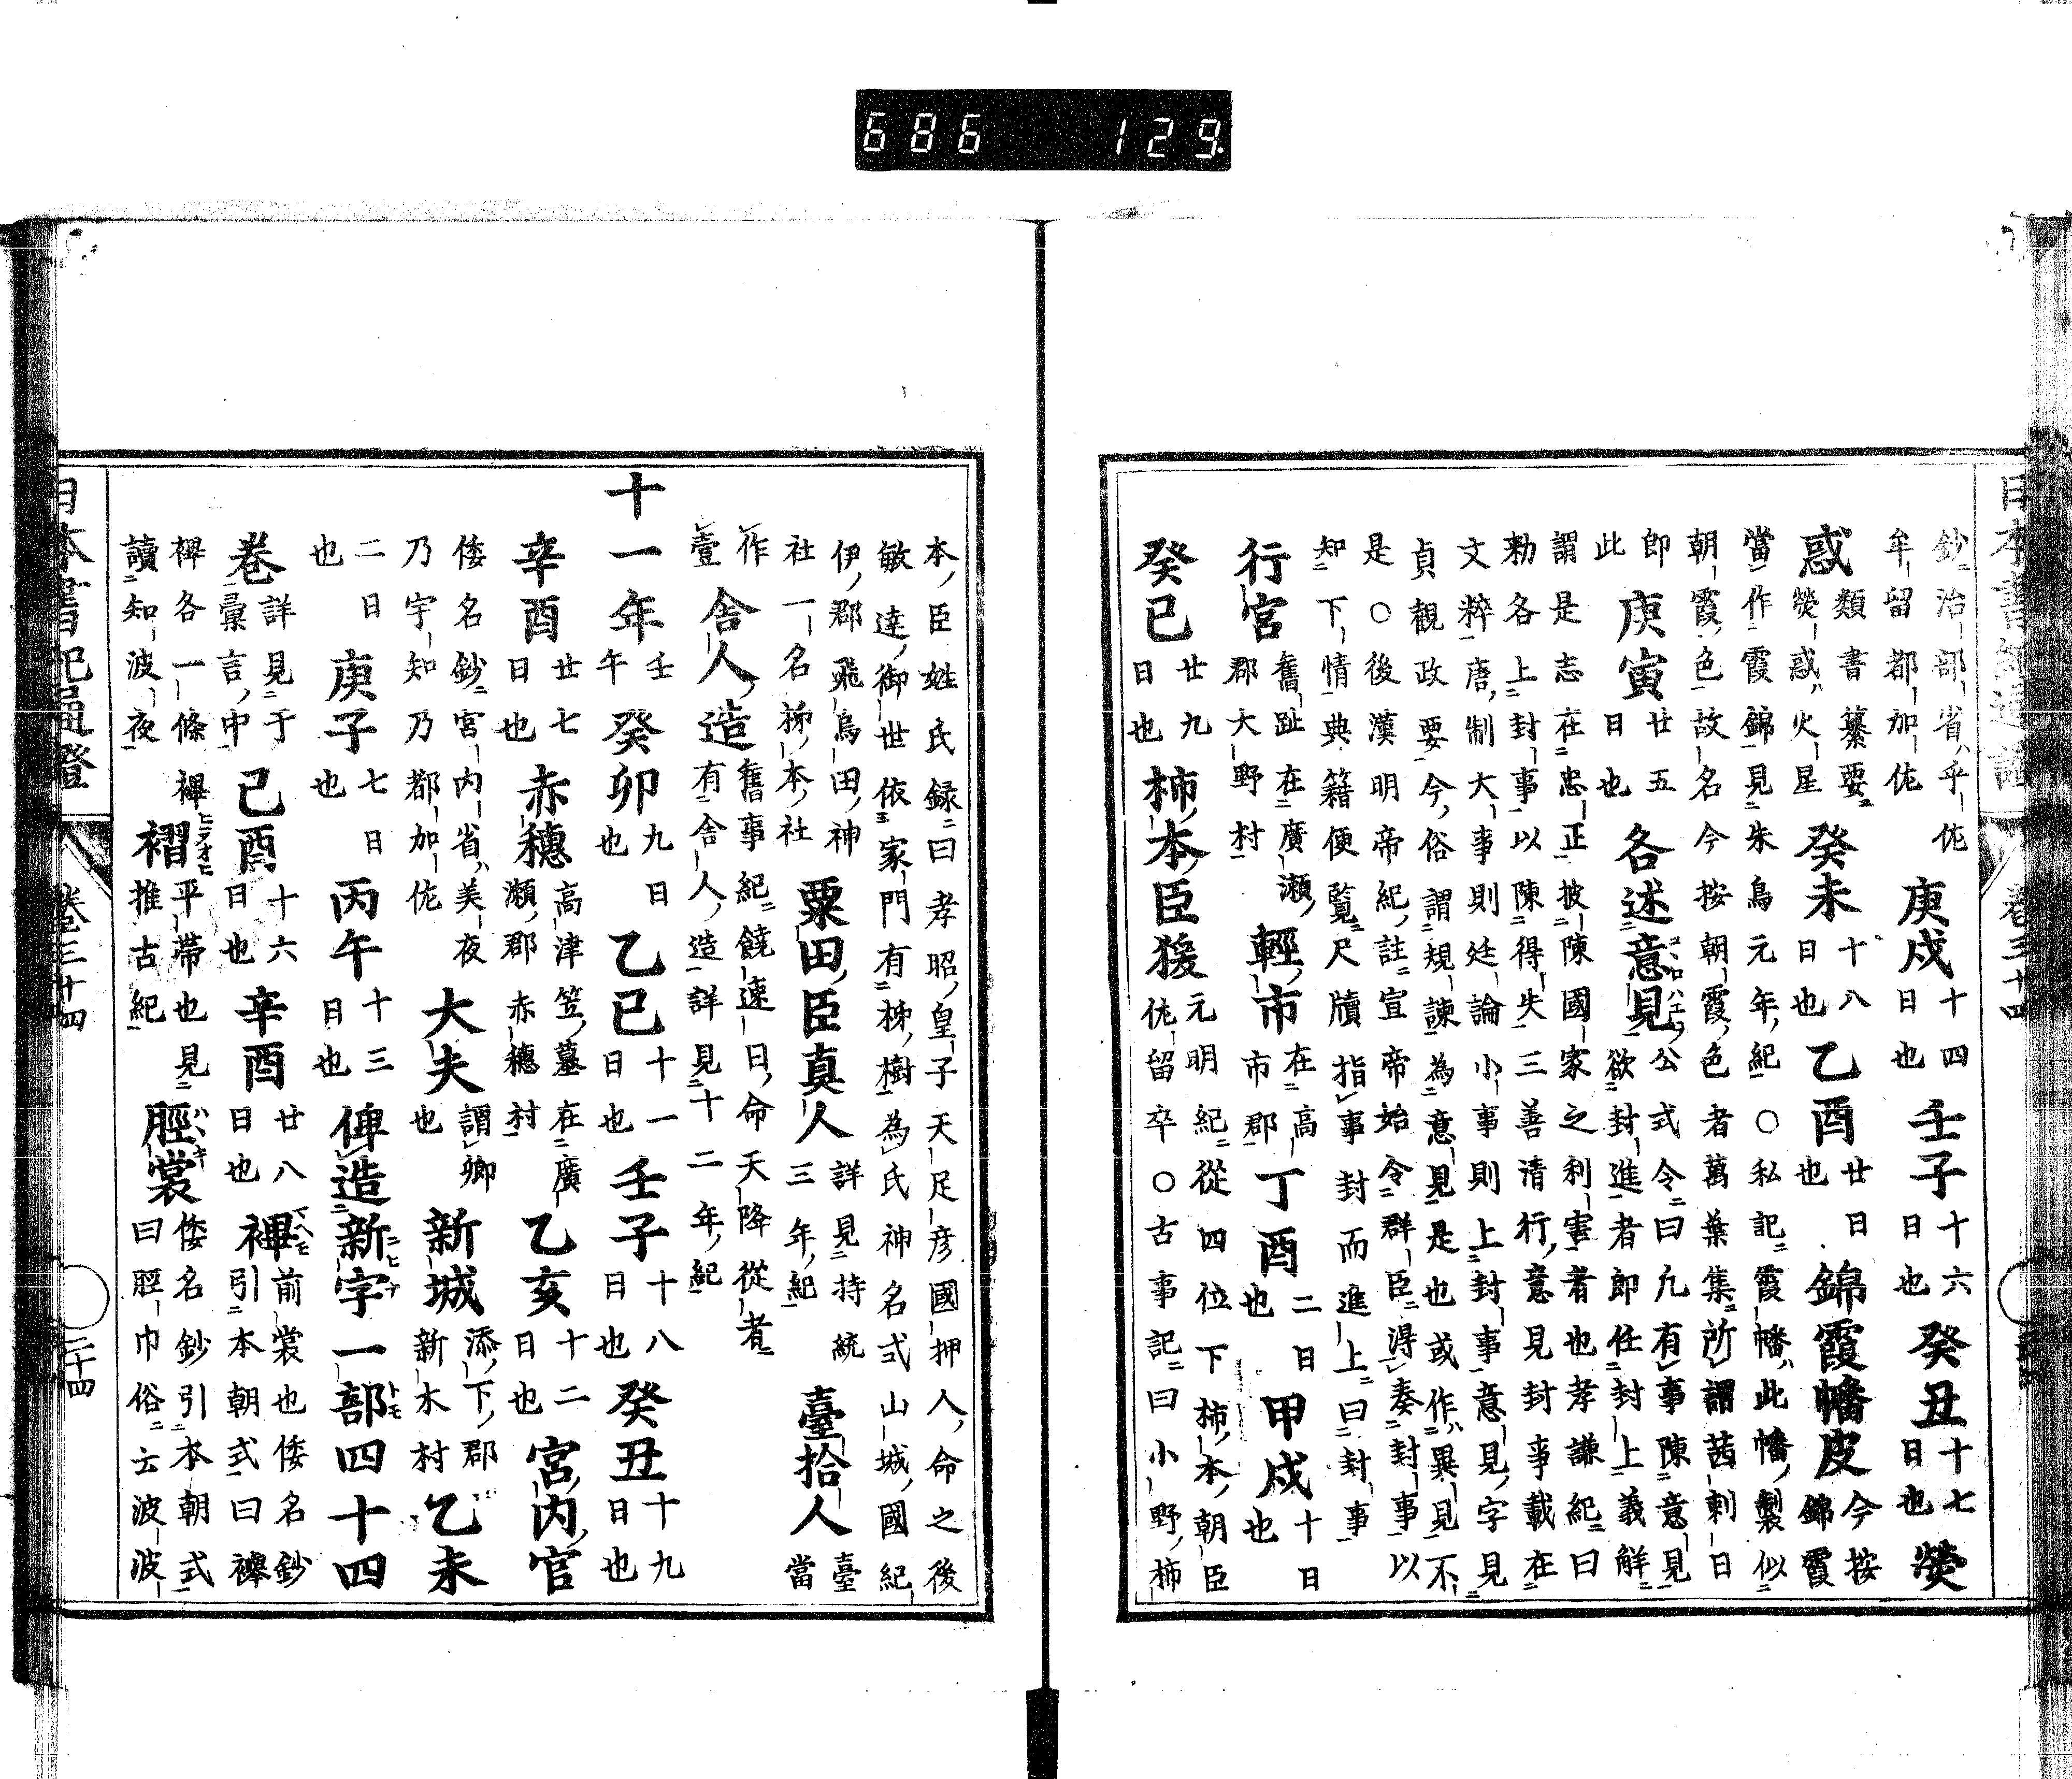 鈔治部省乎佐牟留都加佐 庚戌 十四日也 壬子 十六日也 癸丑 十七日也 熒
惑 類書纂要熒惑火星 癸未 十八日也 乙酉 廿日也 錦霞幡皮 今按錦霞
當作霞錦見朱鳥元年紀○私記霞幡此幡製似
朝霞色故名今按朝霞色者萬葉集所謂茜刺日
即此 庚寅 廿五日也 各述意見 公式令曰凡有事陳意見欲封進者即任封上義解
謂是志在忠正披陳國家之利害者也孝謙紀曰
勅各上封事以陳得失三善清行意見封事載在
文粹唐制大事則廷論小事則上封事意見字見
貞觀政要今俗謂規諫為意見是也或作異見不
是○後漢明帝紀註宣帝始令群臣得奏封事以
知下情典籍便覧尺牘指事封而進上曰封事
行宮 舊趾在廣瀬郡大野村 輕市 在高市郡 丁酉 二日也 甲戌 十日也
癸巳 廿九日也 柿本臣猨 元明紀從四位下柿本朝臣佐留卒○古事記曰小野柿
本臣姓氏録曰孝昭皇子天足彦國押人命之後
敏達御世依家門有柹樹為氏神名式山城國紀
伊郡飛鳥田神社一名柹本社 粟田臣真人 詳見持統三年紀 臺拾人 臺當
作壹 舍人造 舊事紀饒速日命天降從者有舍人造詳見十二年紀
十一年 壬午 癸卯 九日也 乙巳 十一日也 壬子 十八日也 癸丑 十九日也
辛酉 廿七日也 赤穗 高津笠墓在廣瀬郡赤穗村 乙亥 十二日也 宮内官
倭名鈔宮内省美夜乃宇知乃都加佐 大夫 謂卿也 新城 添下郡新木村 乙未
二日也 庚子 七日也 丙午 十三日也 俾造新字一部四十四
卷 詳見于彙言中 己酉 十六日也 辛酉 廿八日也 襅 前裳也倭名鈔引本朝式曰襷
褌各一條襷讀知波夜 褶 平帯也見推古紀 脛裳 倭名鈔引本朝式曰脛巾俗云波波
日本書紀通證 卷三十四 二十四
686 129